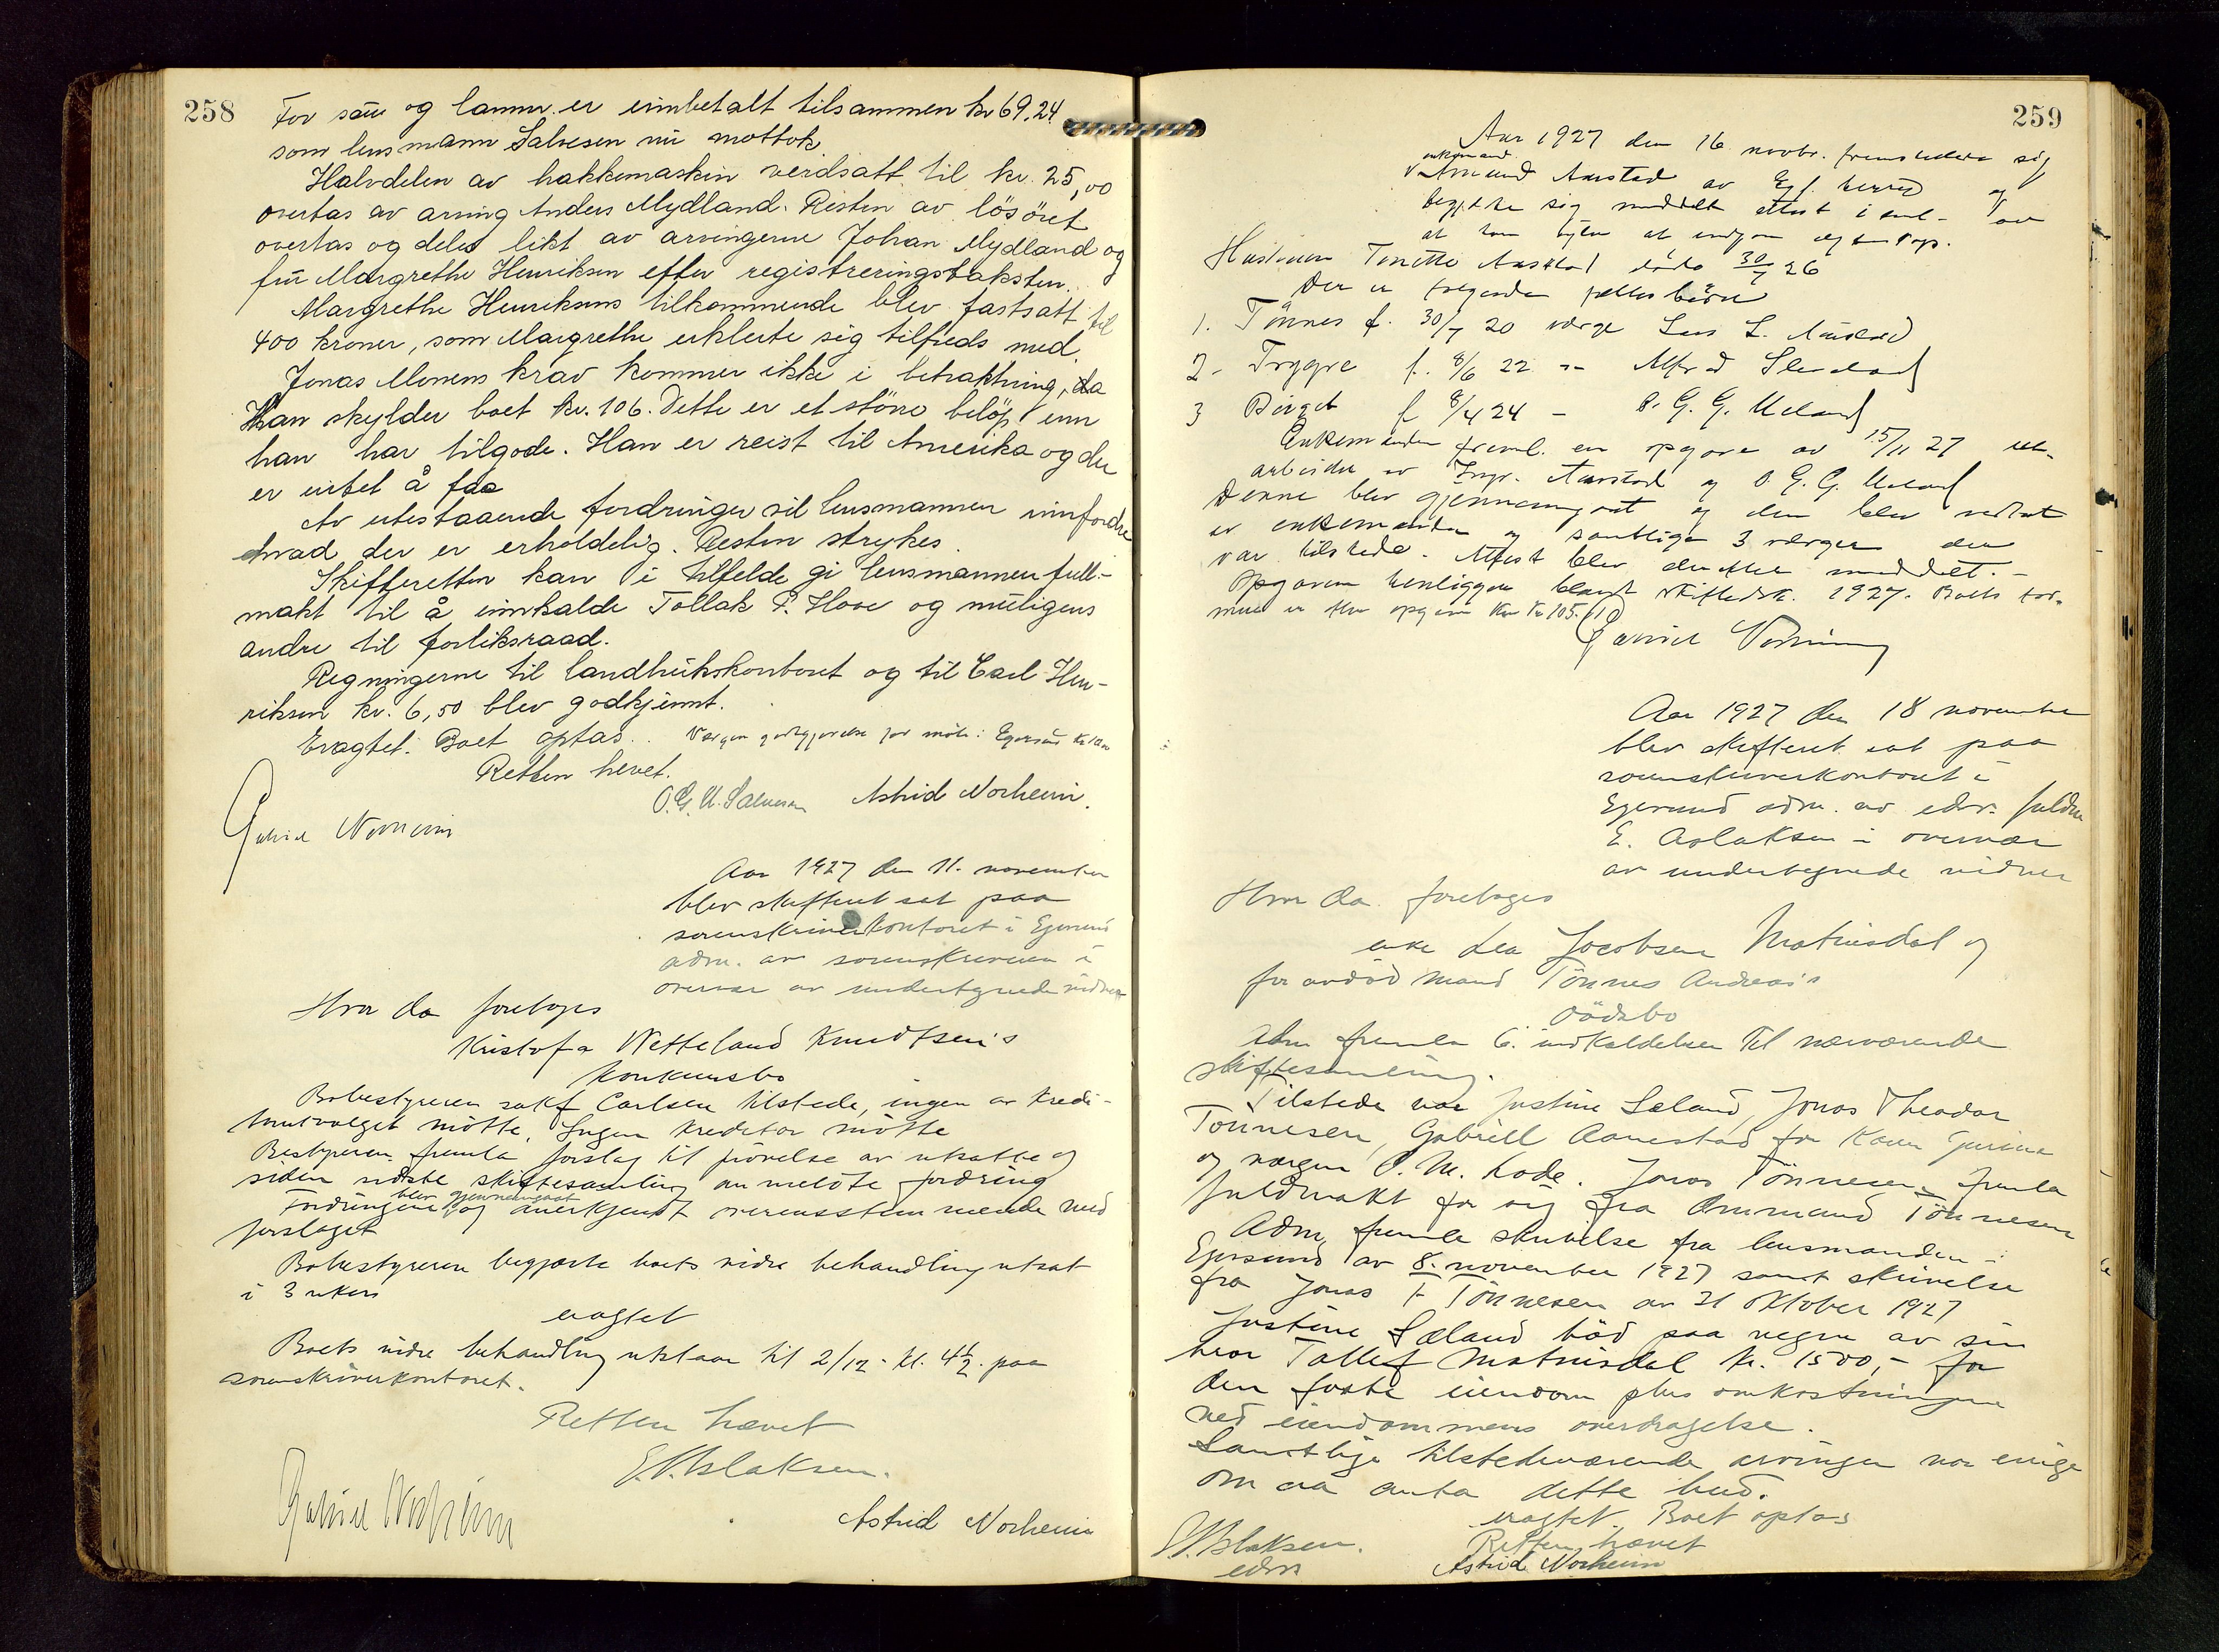 258
For sau og lamm er innbetalt tilsammen kr 69.24
som lensmann Salvesen nu mottok.
Halvdelen av hakkemaskin verdsatt til kr. 25,00
overtas av arving Anders Mydland. Resten av lösöret
overtas og deles likt av arvingerne Johan Mydland og
fru Margrethe Henriksen efter registreringstaksten.
Margrethe Henriksens tilkommende blev fastsatt til
400 kroner, som Margrethe erklerte sig tilfreds med.
Jonas Monens krav kommer ikke i betraktning, da
Han skylder boet kr. 106. Dette er et större belöp enn
han har tilgode. Han er reist til Amerika og der
er intet å faa
Av utestaaende fordringer vil lensmannen innfordre
hvad der er erholdelig. Resten strykes.
Skifteretten kan i tilfelde gi lensmannen full-
makt til å innkalde Tollak P. Hove og muligens
andre til forliksraad.
Regningerne til landbrukskontoret og til Carl Hen-
riksen kr. 6,50 blev godkjennt.
Eragtet: Boet optas. Vergen godtgjørelse for møte i Egersund kr
Retten hevet.
O. G. U. Salvesen Astrid Norheim.
Gabriel Norheim
Aar 1927 den 11. november
blev skifteret sat paa
sorenskriverkontoret i Egersund
adm. av sorenskriveren i
overvær av undertegnede vidner
Hvor da foretoges
Kristofa Netteland Knudtsen's
Konkursbo
Bobestyreren sakf Carlsen tilstede, ingen av kredi-
torutvalget mötte. Ingen kreditor mötte
Bestyreren fremla forslag til prövelse av utsatte og
siden sidste skiftesamling anmeldte fordring
Fordringene blev gjennemgaat og anerkjendt overensstemmende med
forslaget
Bobestyreren begjærte boets vidre behandling utsat
i 3 uker
eragtet
Boets vidre behandling utstaar til 2/12 kl. 4½ paa
sorenskriverkontoret.
Retten hævet
E. Aslaksen.
Gabriel Norheim
Astrid Norheim
259
Aar 1927 den 16 novbr. fremstedte sig
enkemand
Amund Aarstad av Egs. herred og
begjærte sig meddelt attest i
at han at indgaa egteskap.
Hustruen Tonette Aarstad döde 30/7 26
Der er følgende fælles börn
1. Tönnes f. 30/7 20 verge Lars L. Aarstad
2. Trygve f. 8/6 22 Alfred
3 Birgit f 8/4 24 - O. G. G. Ueland
Enkemanden freml. en opgave av 15/11 27 ut-
arbeidet av Ingv. Aarstad og O. G. G. Ueland
Denne blev gjennemgaat og den blev vedtat
av enkemanden og samtlige 3 verger der
var tilstede. Attest blev derefter meddelt.-
Opgaven henligges blandt skiftedok. 1927. Boets for-
mue er efter opgave kr 105.
Gabriel Norheim
Aar 1927 den 18 november
blev skifteret sat paa
sorenskriverkontoret i
Egersund adm. av edsv. fuldm
E. Aslaksen i overvær
av undertegnede vidner
Hvor da foretoges
enke Lea Jocobsen Motrisdal og
for avdöd mand Tönnes Andreas's
Dödsbo
Adm fremla 6. indkaldelser til nærværende
skiftesamling.
Tilstede var Justine Sæland, Jonas Theodor
Tönnesen, Gabriell Aanestad for Karen Gurine
og vergen P. M. Lode. Jonas Tönnesen fremla
fuldmakt for sig fra Ommund Tönnesen
Adm. fremla skrivelse fra lensmanden i
Egersund av 8. november 1927 samt skrivelse
fra Jonas T. Tönnesen av 31 oktober 1927
Justine Sæland böd paa vegne av sin
bror Tollef Motrisdal kr. 1500,- for
den faste eiendom plus omkostningene
ved eiendommens overdragelse.
Samtlige tilstedeværende arvinger var enige
om aa anta dette bud.
eragtet. Boet optas
Retten hævet
E. Aslaksen.
edsv
Astrid Norheim